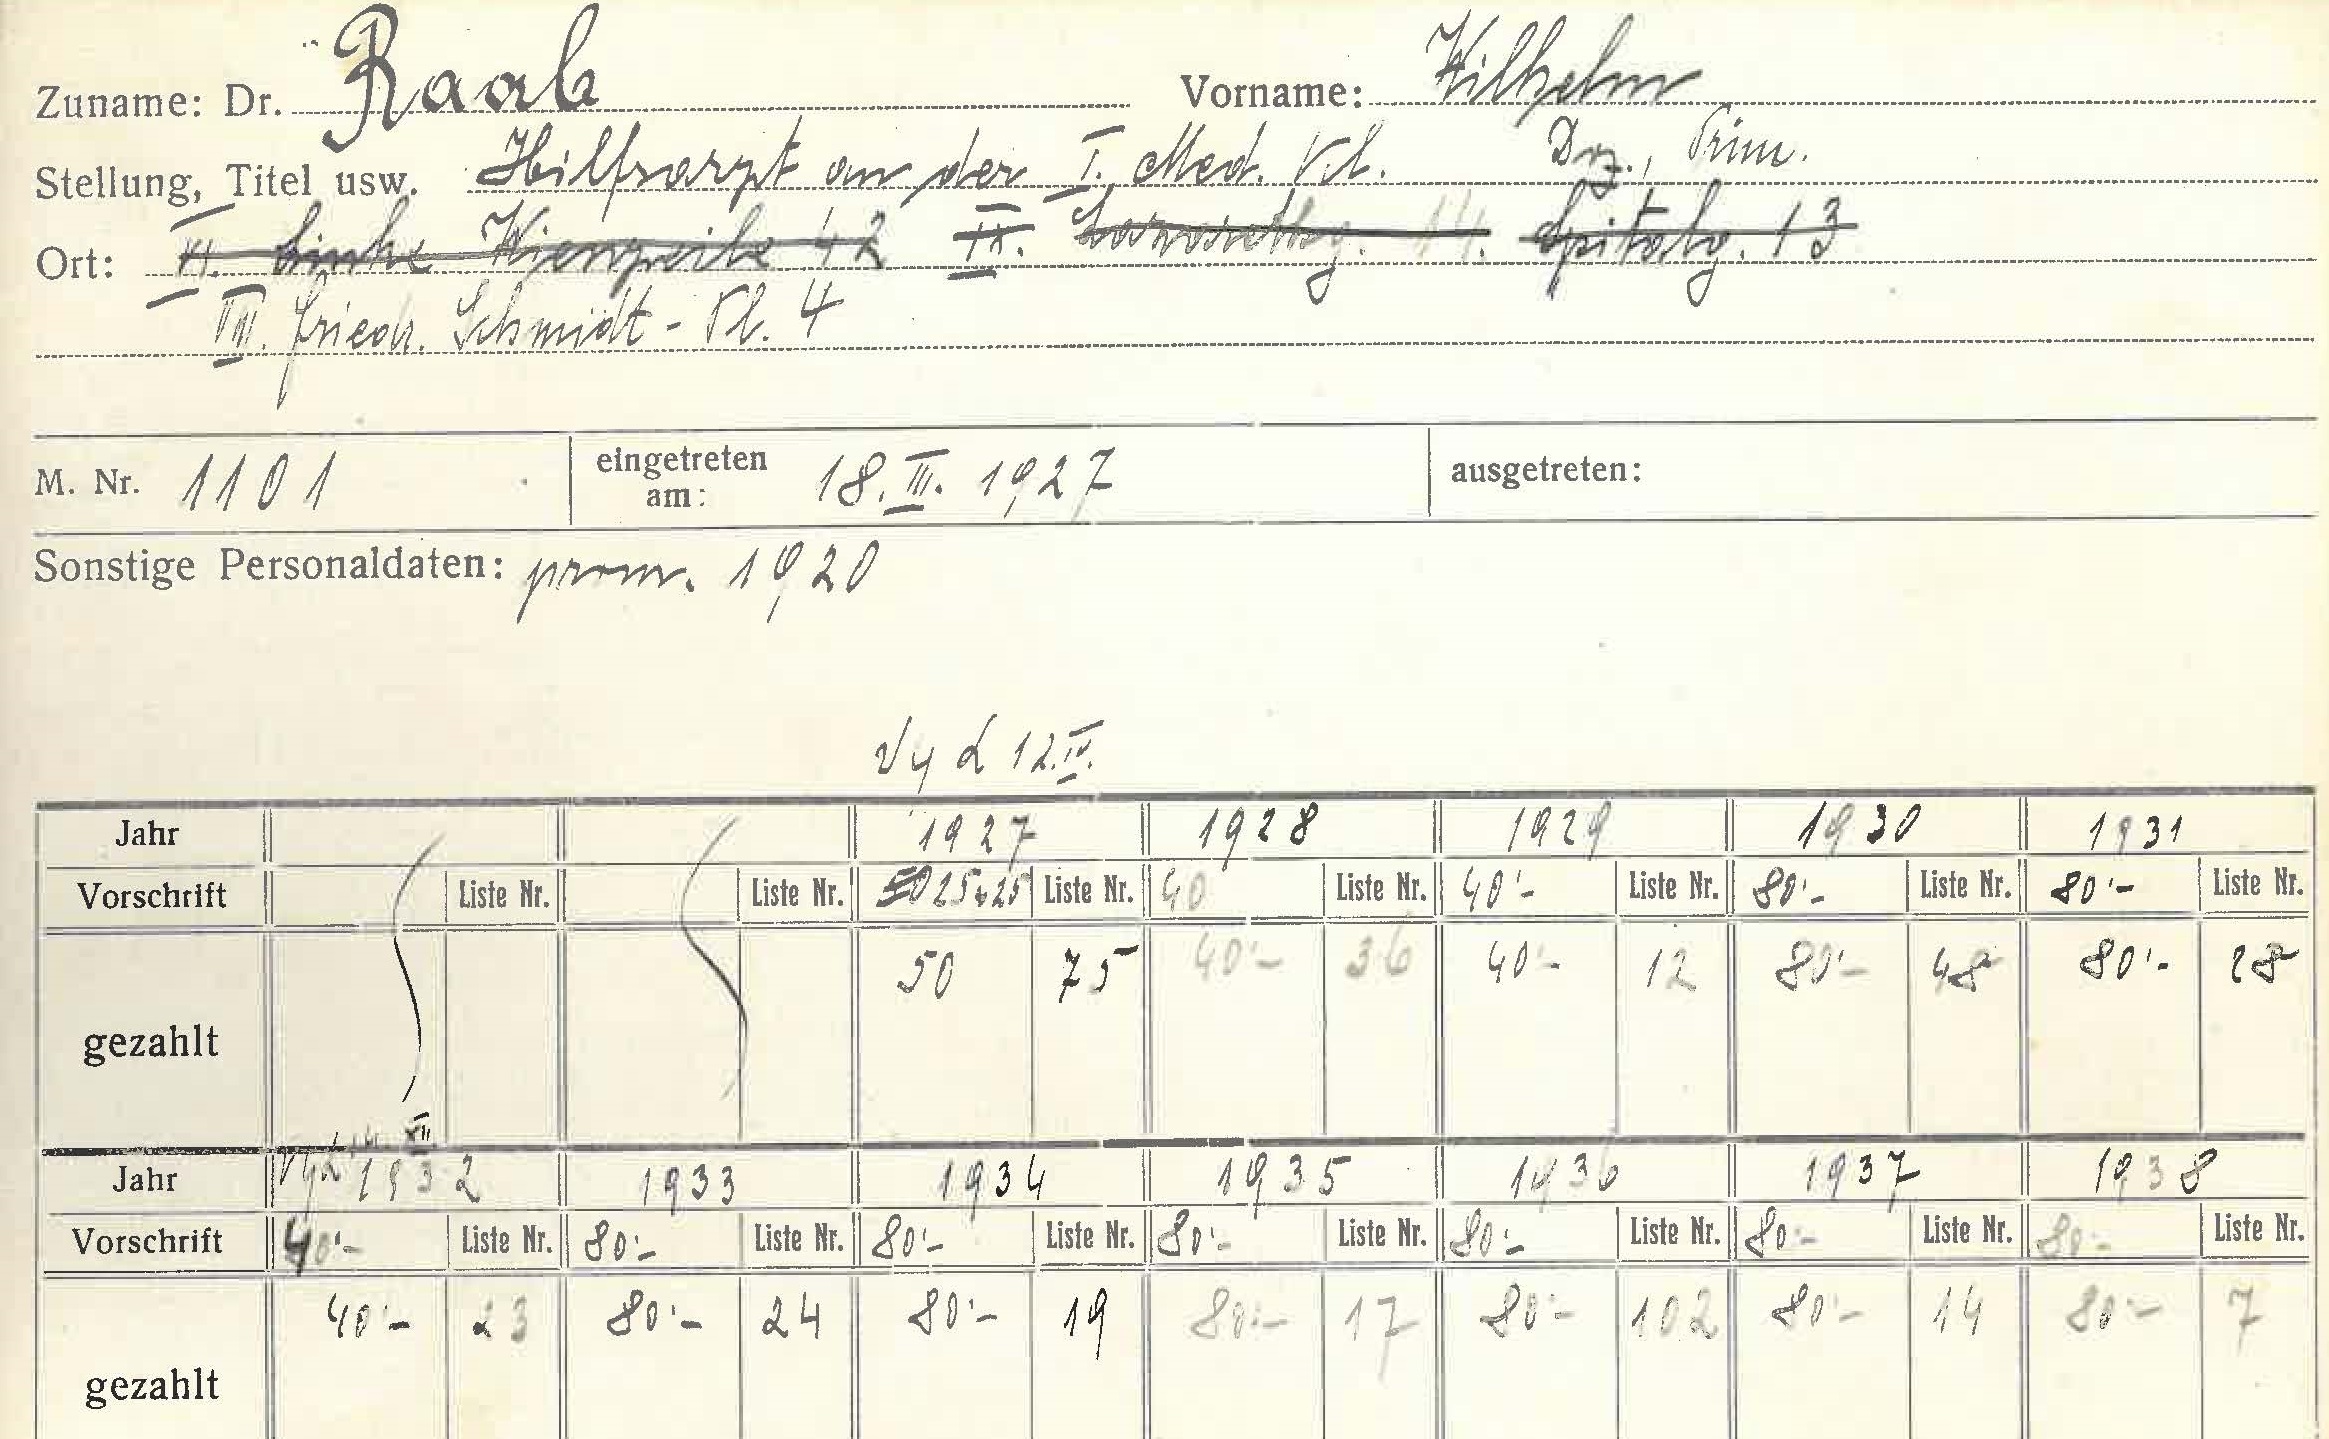 Zuname: Dr. Raab Vorname: Wilhelm
Stellung, Titel usw. Hilfsarzt an der I. Med. Kl. Doz., Prim.
Ort: VI. Linke Wienzeile 42 IX. Lazarettg. 14. Spitalg. 13
VIII. Friedr. Schmidt-Pl. 4
M. Nr. 1101 eingetreten am: 18. III. 1927 ausgetreten:
Sonstige Personaldaten: prom. 1920
12. IV.
Jahr 1927 1928 1929 1930 1931
Vorschrift Liste Nr. Liste Nr. 50 25+25 Liste Nr. 40 Liste Nr. 40'- Liste Nr. 80'- Liste Nr. 80'- Liste Nr.
gezahlt 50 75 40'- 36 40'- 12 80'- 48 80'- 28
XII.
Jahr 1932 1933 1934 1935 1936 1937 1938
Vorschrift 40'- Liste Nr. 80'- Liste Nr. 80'- Liste Nr. 80'- Liste Nr. 80'- Liste Nr. 80'- Liste Nr. 80'- Liste Nr.
gezahlt 40'- 23 80'- 24 80'- 19 80'- 17 80'- 102 80'- 14 80'- 7